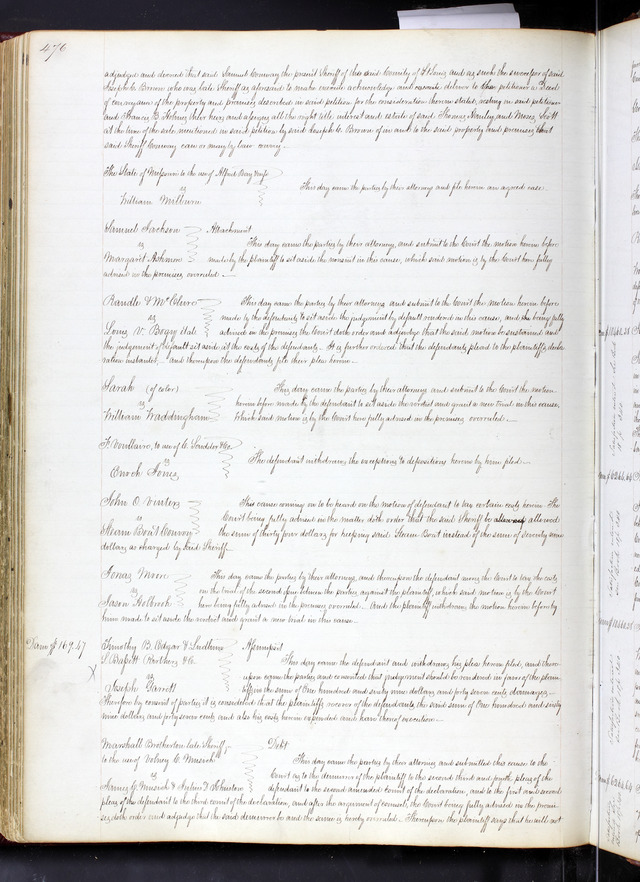 476
adjudged and decreed that said Samuel Conway the present Sheriff of the said County of St Louis and as such the successor of said
Joseph C. Brown who was late Sheriff as aforesaid to make execute acknowledge and deliver to the petitioner a Deed
of conveyance of the property and premises described in said petition for the consideration therein stated, vesting in said petitioner
and Francis B. Holmes their heirs and assigns all the right title interest and estate of said Thomas Hanley and Moses Scott
at the time of the sale mentioned in said petition by said Joseph C. Brown of in and to the said property and premises that
said Sheriff Conway can or may by law convey.
The State of Missouri to the use of Alfred Bray &
vs
William Milburn
This day came the parties by their attorneys and file herein an agreed case.
Samuel Jackson Attachment
vs This day came the parties by their attorneys, and submit to the Court the motion herein before
Margaret Ashmore made by the plaintiff to set aside the nonsuit in this cause, which said motion is by the Court here fully
advised in the premises overruled.
Randle & McClure This day came the parties by their attorneys and submit to the Court the motion herein before
vs made by the defendants to set aside the judgement by default rendered in this cause, and the being fully
Louis V. Bogy et al. advised in the premises the Court doth order and adjudge that the said motion be sustained and
the judgement of default set aside at the costs of the defendants. It is further ordered that the defendants plead to the plaintiffs decla
ration instanter, and thereupon the defendants file their plea herein.
Sarah (of color) This day came the parties by their attorneys and submit to the Court the motion
vs herein before made by the defendant to set aside the verdict and grant a new trial in this cause,
William Waddingham Which said motion is by the Court here fully advised in the premises overruled.
F. to use of &Co.
vs The defendant withdraws the exceptions to depositions herein by him filed.
Enoch Jones
John C. Vinters This cause coming on to be heard on the motion of defendant to tax certain costs herein The
vs Court being fully advised in the matter doth order that the said Sheriff be allowed
Steam Boat Convoy the sum of thirty four dollars for keeping said Steam Boat instead of the sum of seventy nine
dollars as charged by said Sheriff.
Jonas Moore This day came the parties by their attorneys, and thereupon the defendant moves the Court to tax the costs
vs on the trial of the second between the parties against the plaintiff, which said motion is by the Court
Jason Holbrook here being fully advised in the premises overruled. And the plaintiff withdraws the motion herein before by
him made to set aside the verdict and grant a new trial in this cause.
Damgs 169.47
Timothy B. Edgar & Assumpsit
This day came the defendant and withdraws his plea herein filed, and there
vs upon came the parties and consented that judgement should be rendered in favor of the plain
Joseph Garrett tiffs in the sum of One hundred and sixty nine dollars and forty seven cents damages.
Therefore by consent of parties it is considered that the plaintiffs recover of the defendant, the said sum of One hundred and sixty
nine dollars, and forty seven cents and also his costs herein expended and have thereof execution.
Marshall Brotherton late Sheriff Debt
to the use of Volney C. Musick This day came the parties by their attorneys and submitted this cause to the
vs Court as to the demurrer of the plaintiff to the second third and fourth pleas of the
James G. Musick & Johnston defendant to the second amended count of the declaration, and to the first and second
pleas of the defendant to the third count of the declaration, and after the argument of counsel, the Court being fully advised in the premi
ses, doth order and adjudge that the said demurrer be and the same is hereby overruled. Thereupon the plaintiff says that he will not